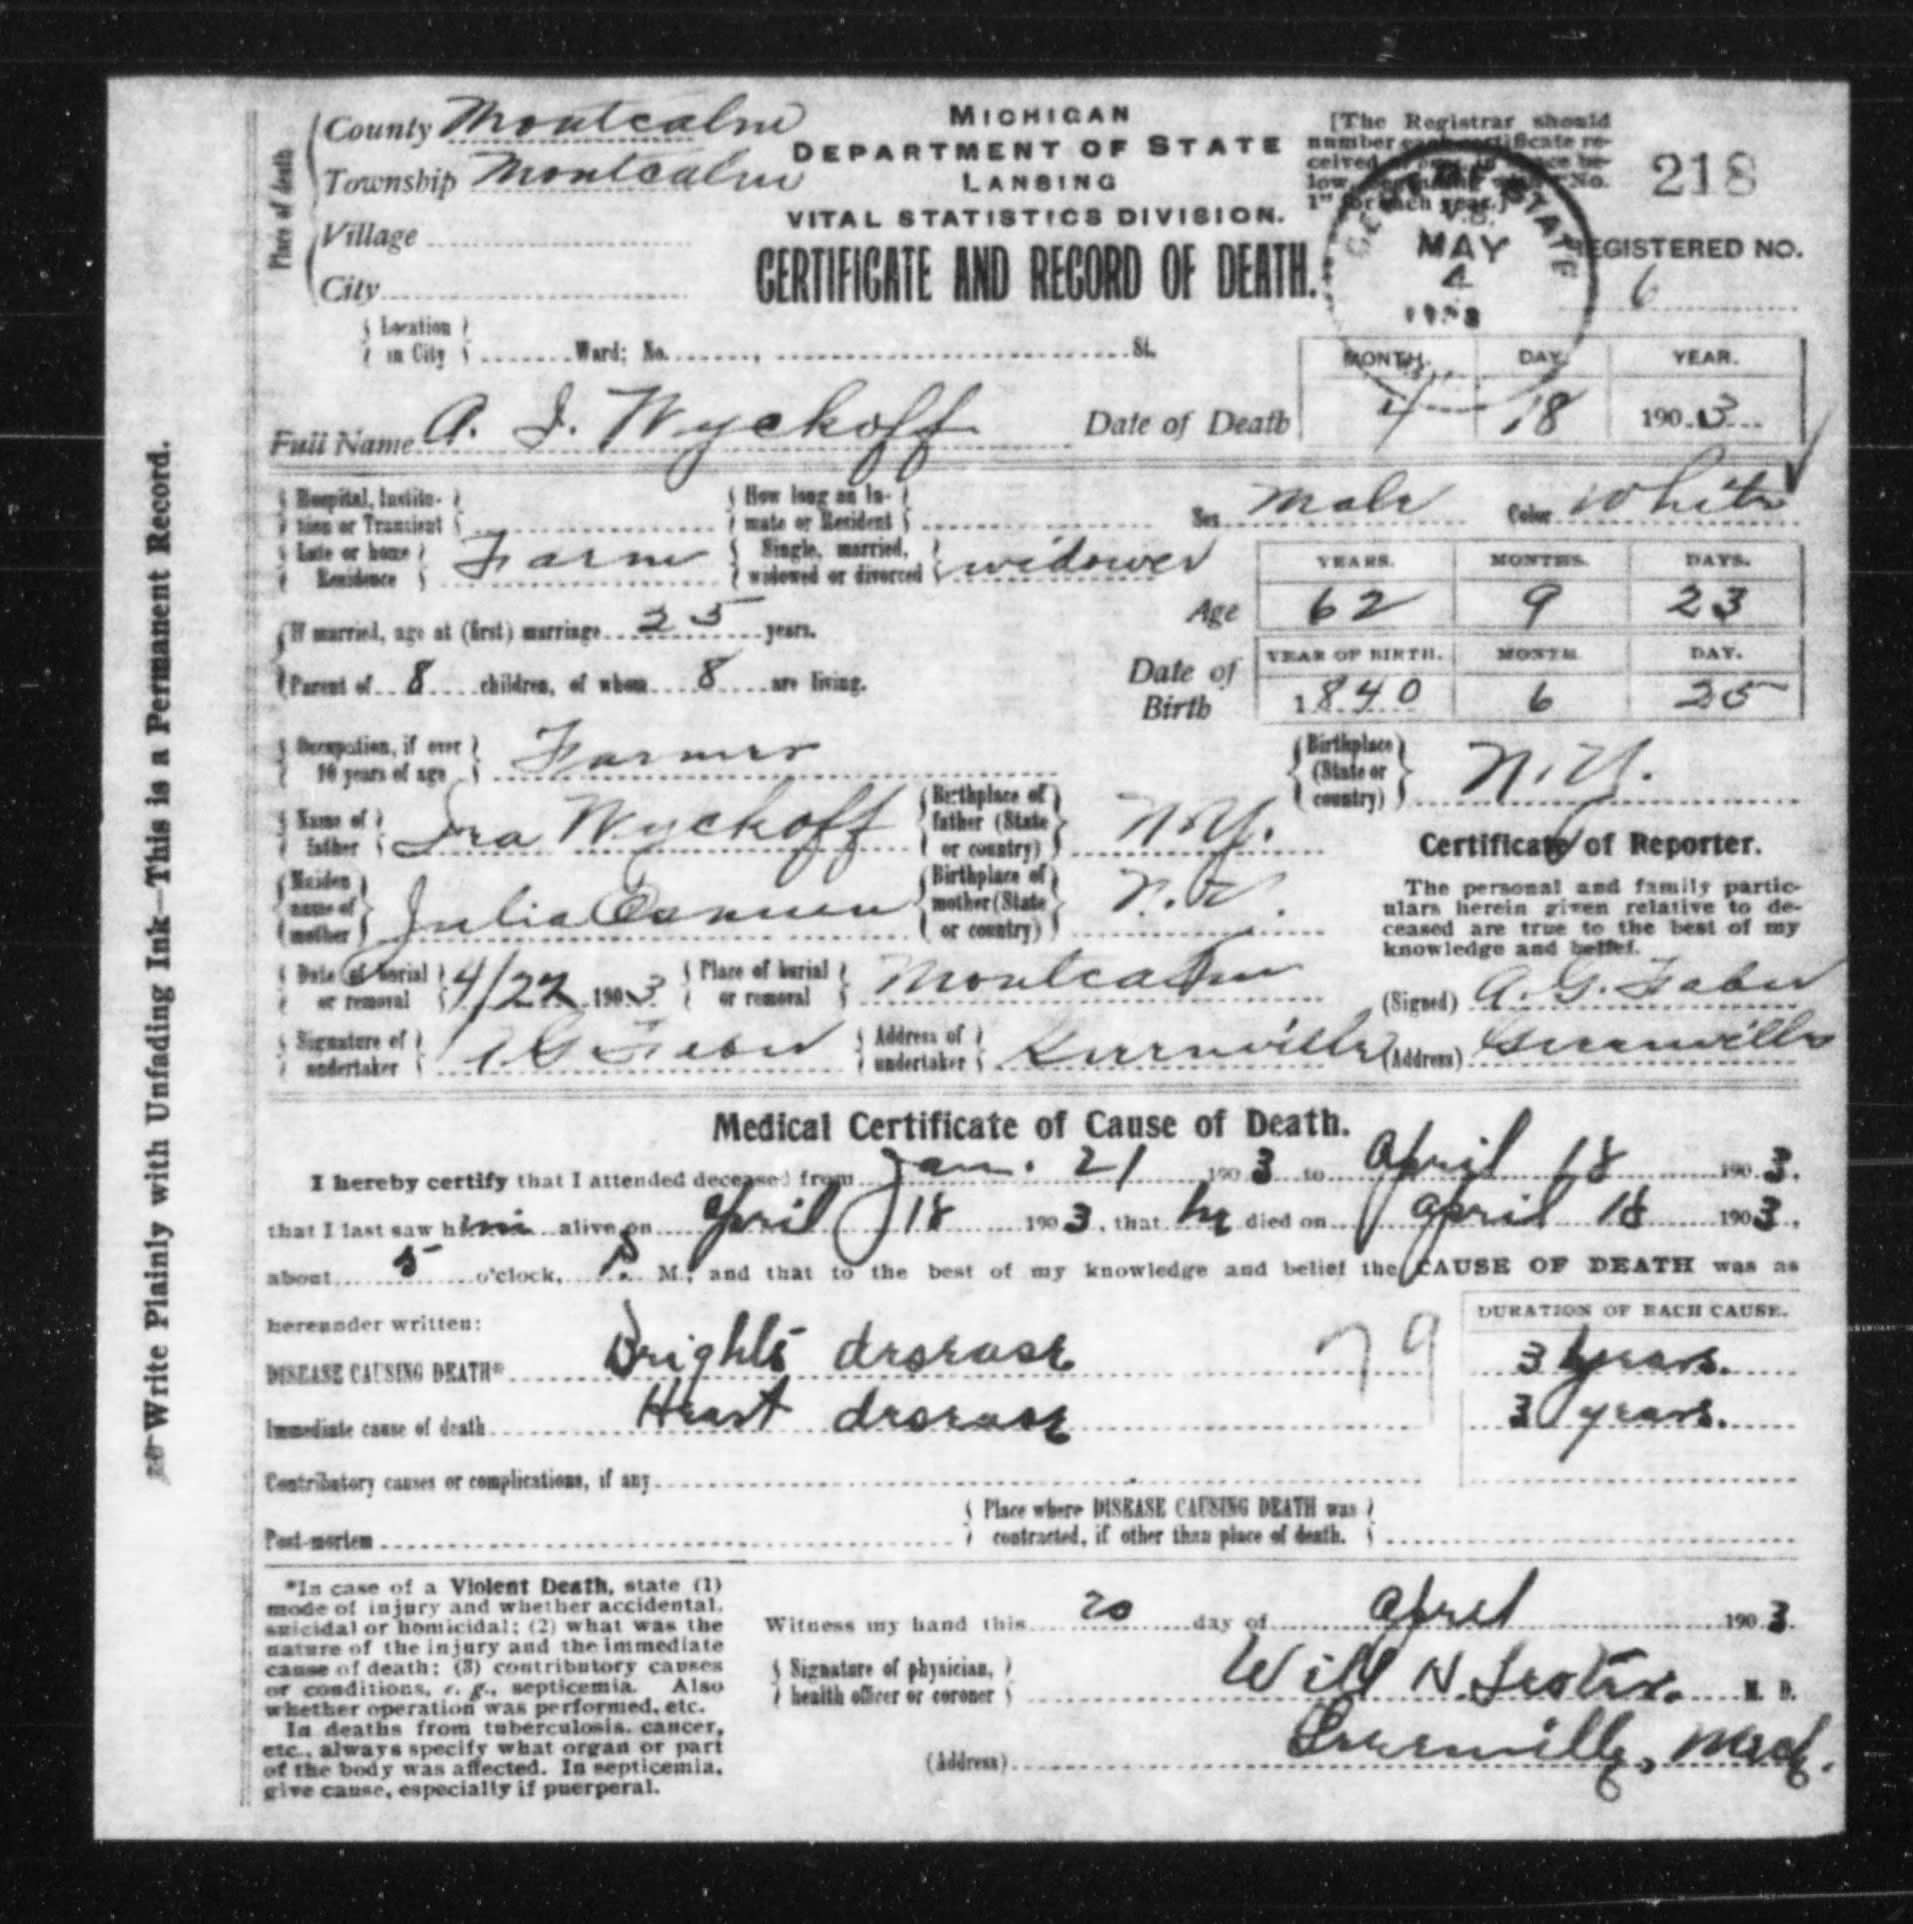 Place of death
County Montcalm
Township Montcalm
Village
City
MICHIGAN
DEPARTMENT OF STATE
LANSING
VITAL STATISTICS DIVISION.
CERTIFICATE AND RECORD OF DEATH.
[The Registrar should
number each certificate re-
218
STATE
MAY
4
REGISTERED NO.
6
Location in City Ward; No. , St.
Full Name A. I. Wyckoff Date of Death
MONTH. DAY. YEAR.
4 18 1903
Hospital, Institu-tion or Transient How long an In-mate or Resident Sex Male Color White
Late or home Residence Farm Single, married, widowed or divorced widower
Age YEARS. MONTHS. DAYS.
62 9 23
If married, age at (first) marriage 25 years.
Parent of 8 children, of whom 8 are living.
Date of Birth YEAR OF BIRTH. MONTH. DAY.
1840 6 25
Occupation, if over 10 years of age Farmer Birthplace (State or country) N.Y.
Name of father Ira Wyckoff Birthplace of father (State or country) N.Y.
Maiden name of mother Julia Birthplace of mother (State or country) N.Y.
Certificate of Reporter.
The personal and family partic-
ulars herein given relative to de-
ceased are true to the best of my
knowledge and belief.
(Signed) A. G. Faber
(Address) Greenville
Date of burial or removal 4/22 1903 Place of burial or removal Montcalm
Signature of undertaker A G Faber Address of undertaker Greenville
Medical Certificate of Cause of Death.
I hereby certify that I attended deceased from Jan. 21 1903 to April 18 1903,
that I last saw him alive on April 18 1903, that he died on April 18 1903,
about 5 o'clock, P. M., and that to the best of my knowledge and belief the CAUSE OF DEATH was as
hereunder written:
DURATION OF EACH CAUSE.
DISEASE CAUSING DEATH* Brights disease 79 3 years.
Immediate cause of death Heart disease 3 years.
Contributory causes or complications, if any
Post-mortem Place where DISEASE CAUSING DEATH was contracted, if other than place of death.
*In case of a Violent Death, state (1)
mode of injury and whether accidental,
suicidal or homicidal; (2) what was the
nature of the injury and the immediate
cause of death; (3) contributory causes
or conditions, e. g., septicemia. Also
whether operation was performed, etc.
In deaths from tuberculosis, cancer,
etc., always specify what organ or part
of the body was affected. In septicemia,
give cause, especially if puerperal.
Witness my hand this 20 day of April 1903.
Signature of physician, health officer or coroner Will N. M. D.
(Address) Greenville, Mich.
Write Plainly with Unfading Ink—This is a Permanent Record.